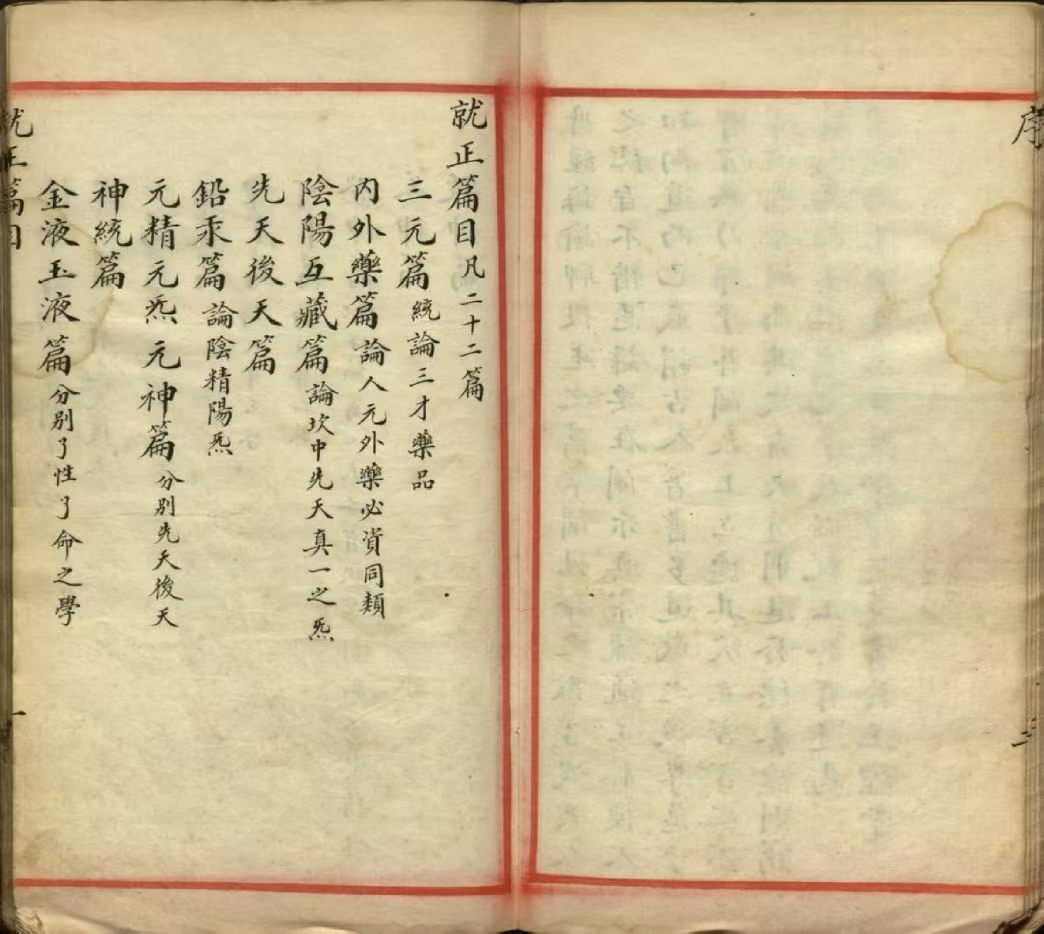 序
三
就正篇目凡二十二篇
三元篇統論三才藥品
內外藥篇論人元外藥必資同類
陰陽互藏篇論坎中先天真一之炁
先天後天篇
鉛汞篇論陰精陽炁
元精元炁元神篇分別先天後天
神統篇
金液玉液篇分別了性了命之學
就正篇目
一